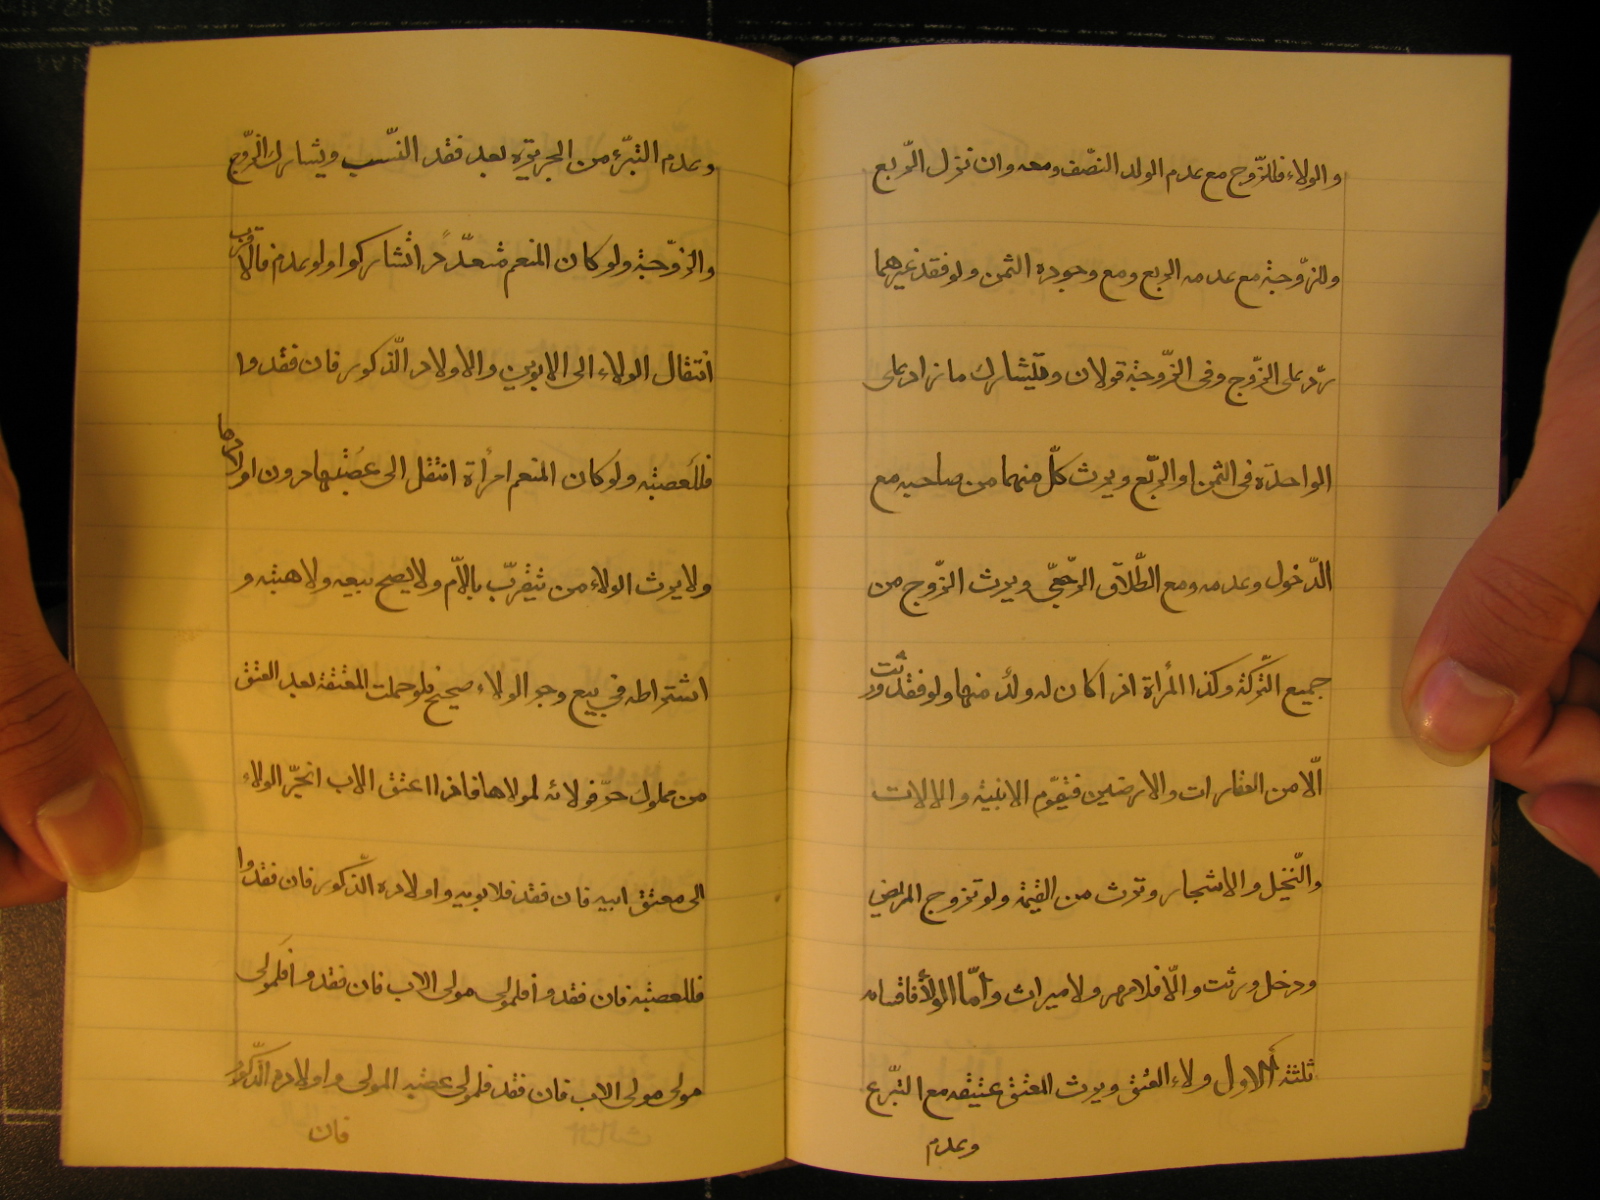 والولاء فللزّوج مع عدم الولد النصّف ومعه وان نزل الرّبع
وللزّوجة مع عدمه الربع ومع وجوده الثمن ولو فقد غيرهما
ردّ على الزّوج وفى الزّوجة قولان وقيشارك ما زاد على
الواحدة فى الثمن او الربّع ويرث كلّ منهما من صاحبه مع
الدّخول وعدمه ومع الطّلاق الرّجعىّ ويرث الزّوج من
جميع التّركة وكذا المرأة اذا كان له ولد منها ولو فقد ورثت
الّا من العقارات والارضين فيقوّم الابنية والالات
والنّخيل والاشجار وترث من القيمة ولو تزوج المريض
ودخل ورثت والّا فلا مهر ولا ميراث وامّا الولاء فاقسامه
ثلثة الاول ولاء العتق ويرث المعتق عتيقه مع التبّرع
وعدم
وعدم التبّرء من الجريرة بعد فقد النّسب ويشارك الزّوج
والزّوجة ولو كان المنعم متعدّدًا تشاركوا ولو عدم فالاقرب
انتقال الولاء الى الابوين والاولاد الذّكور فان فقدوا
فللعصبة ولو كان المنعم امرأة انتقل الى عصبتها دون اولادها
ولا يرث الولاء من يتقرّب بالاّم ولا يصح بيعه ولا هبته و
اشتراطه في بيع وجر الولاء صحيح فلو حملت المعتقة بعد العتق
من مملوك حرّ فولائه لمولاها فاذا اعتق الاب انجرّ الولاء
الى معتق ابيه فان فقد فلابويه واولاده الذّكور فان فقدوا
فللعصبة فان فقدوا فلمولى مولى الاب فان فقدوا فلمولى
مولى مولى الاب فان فقد فلمولى عصبة المولى واولاده الذّكور
فان